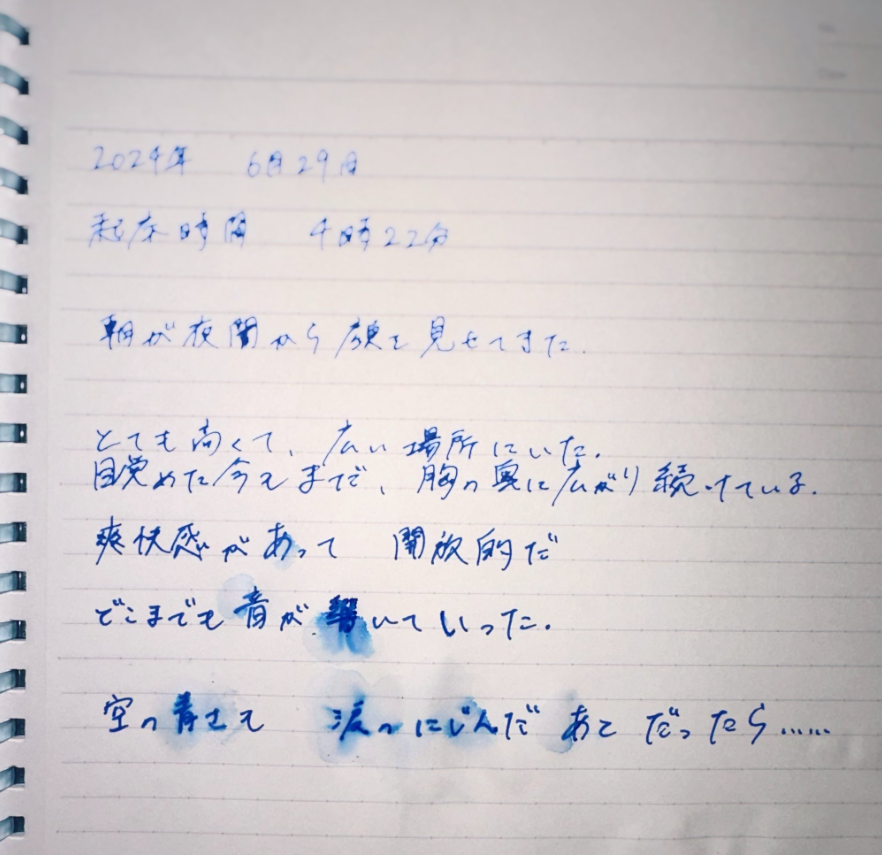 2024年 6月29日
起床時間 4時22分
朝が夜闇から顔を見せてきた.
とても高くて、広い場所にいた.
目覚めた今もまだ、胸の奥に広がり続けている.
爽快感があって 開放的だ
どこまでも音が響いていった.
空の青さも 涙のにじんだあとだったら……